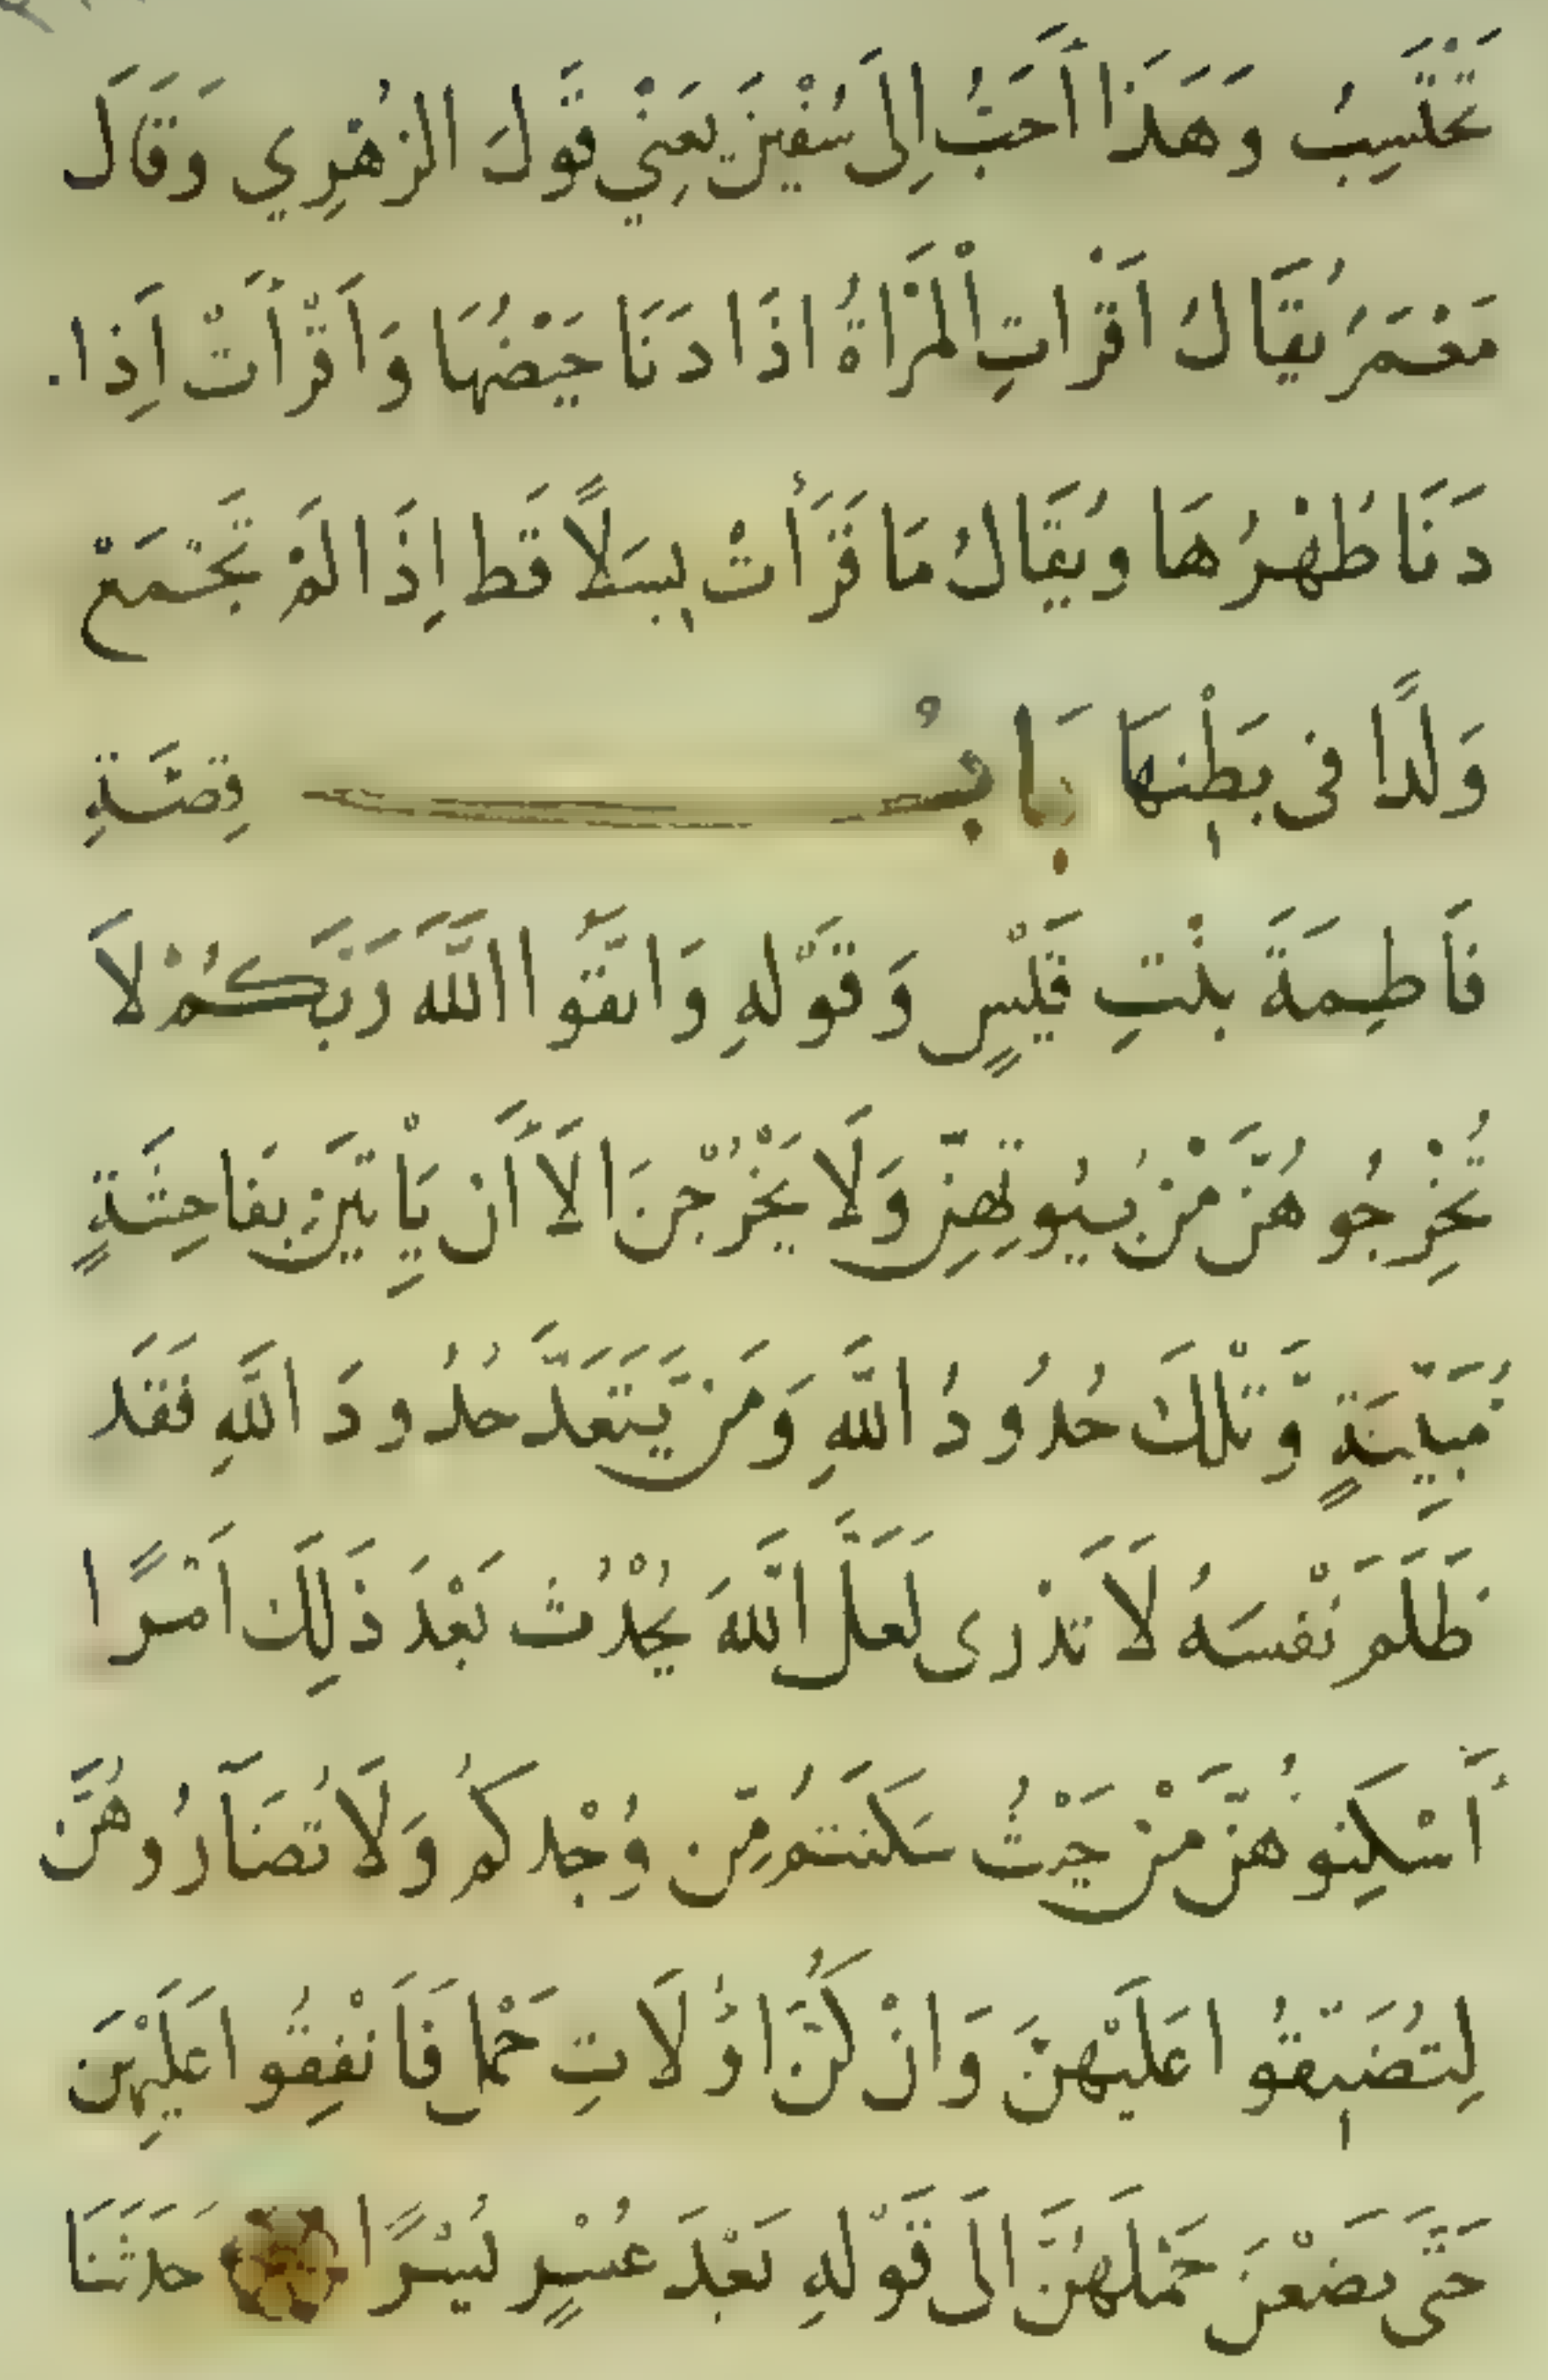 تَحْتَسِبُ وَهَذَا أَحَبُّ اِلَى سُفْيٰنَ يَعْنِيْ قَوْلَ الزُهْرِي وَقَالَ
مَعْمَرُ يُقَالُ اَقْرَاتِ الْمَرْاَةُ اذَا دَنَا حَيْضُهَا وَاَقْرَأَتْ اِذا
دَنَا طُهْرُهَا وَيُقَالُ مَا قَرَأَتْ بِسَلًا قَط اِذَا لَمْ تَجْتَمِعْ
وَلَدًا فى بَطْنِهَا بَابُ قِصَّةِ
فَاطِمَةَ بِنْتِ قَيْسٍ وَقَوْلِهِ وَاتَّقُوا اللَّهَ رَبَّكُمْ لاَ
تُخْرِجُوهُنَّ مِنْ بُيُوتِهِنَّ وَلَا يَخْرُجْنَ الَّا أَن يَأْتِيَنَ بِفَاحِشَةٍ
مُّبَيِّنَةٍ وَّتْلِكَ حُدُودُ اللَّهِ وَمَنْ يَّتَعَدَّ حُدُودَ اللَّهِ فَقَدْ
ظَلَمَ نَفْسَهُ لَا تَدْرِى لَعَلَّ اللَّهَ يُحْدِثُ بَعْدَ ذَلِكَ اَمْرًا
أَسْكِنُوهُنَّ مِنْ حَيْثُ سَكَنتُمْ مِّن وُجْدِكُمْ وَلَا تُضَآرُوهُنَّ
لِتُضَيِّقُوا عَلَيْهِنَّ وَانْ كُنَّ اوُلَاتِ حَمْلٍ فَاَنْفِقُوا عَلَيْهِنَ
حَتَّى يَضَعْنَ حَمْلَهُنَّ اِلَى قَوْلِهِ بَعْدَ عُسْرٍ يُسْرًا حَدَثَنَا